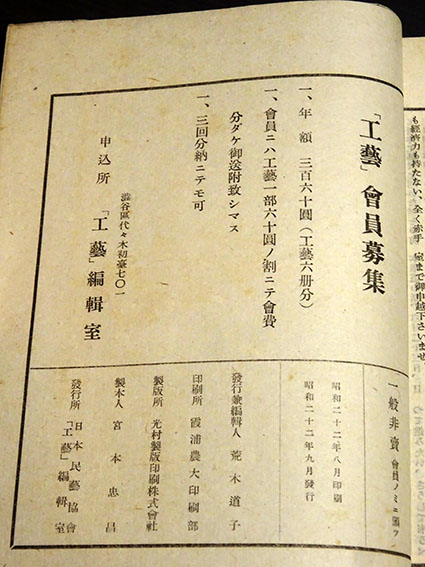 も經濟力も持たない、全く赤手
室まで御申越下さいませ
「工藝」會員募集
一、年額 三百六十圓(工藝六册分)
一、會員ニハ工藝一部六十圓ノ割ニテ會費
分ダケ御送附致シマス
一、三回分納ニテモ可
申込所 澁谷區代々木初臺七〇一
「工藝」編輯室
一般非賣 會員ノミニ頒ツ
昭和二十二年八月印刷
昭和二十二年九月發行
發行兼編輯人 荒木道子
印刷所 霞浦農大印刷部
製版所 光村製版印刷株式會社
製本人 宮本忠昌
發行所 日本民藝協會
「工藝」編輯室